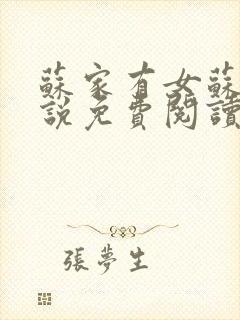 蘇家有女蘇
說免費閱讀
張夢生